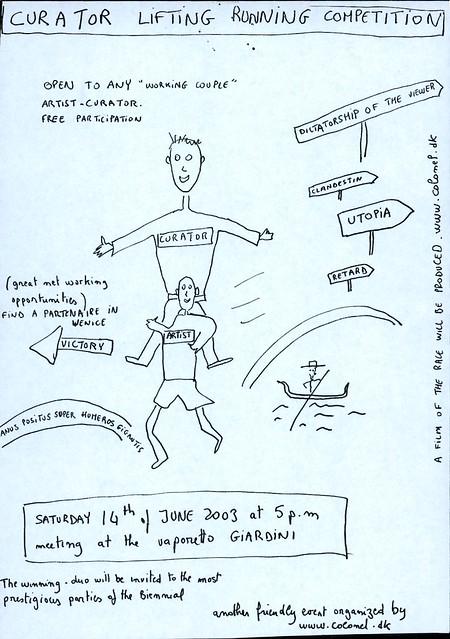 CURATOR LIFTING RUNNING COMPETITION
OPEN TO ANY "WORKING COUPLE"
ARTIST-CURATOR.
FREE PARTICIPATION
DICTATORSHIP OF THE VIEWER
CLANDESTIN
UTOPIA
RETARD
CURATOR
ARTIST
(great net working
opportunities)
FIND A PARTENAIRE IN
WENICE
VICTORY
ANUS POSITUS SUPER HOMEROS GIGANTIS
A FILM OF THE RACE WILL BE PRODUCED. www.colonel.dk
SATURDAY 14th of JUNE 2003 at 5 p.m
meeting at the vaporetto GIARDINI
The winning-duo will be invited to the most
prestigious parties of the Biennual
another friendly event organized by
www.colonel.dk